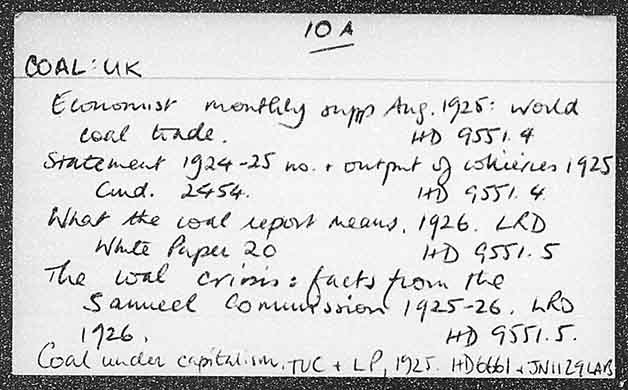 10 A
COAL: UK
Economist monthly supp Aug. 1925: World
coal trade. HD 9551.4
Statement 1924-25 no. + output of collieries 1925
Cmd. 2454. HD 9551.4
What the coal report means, 1926. LRD
White Paper 20 HD 9551.5
The coal crisis: facts from the
Samuel Commission 1925-26. LRD
1926. HD 9551.5.
Coal under capitalism. TUC + LP, 1925. HD6661 + JN1129LAB